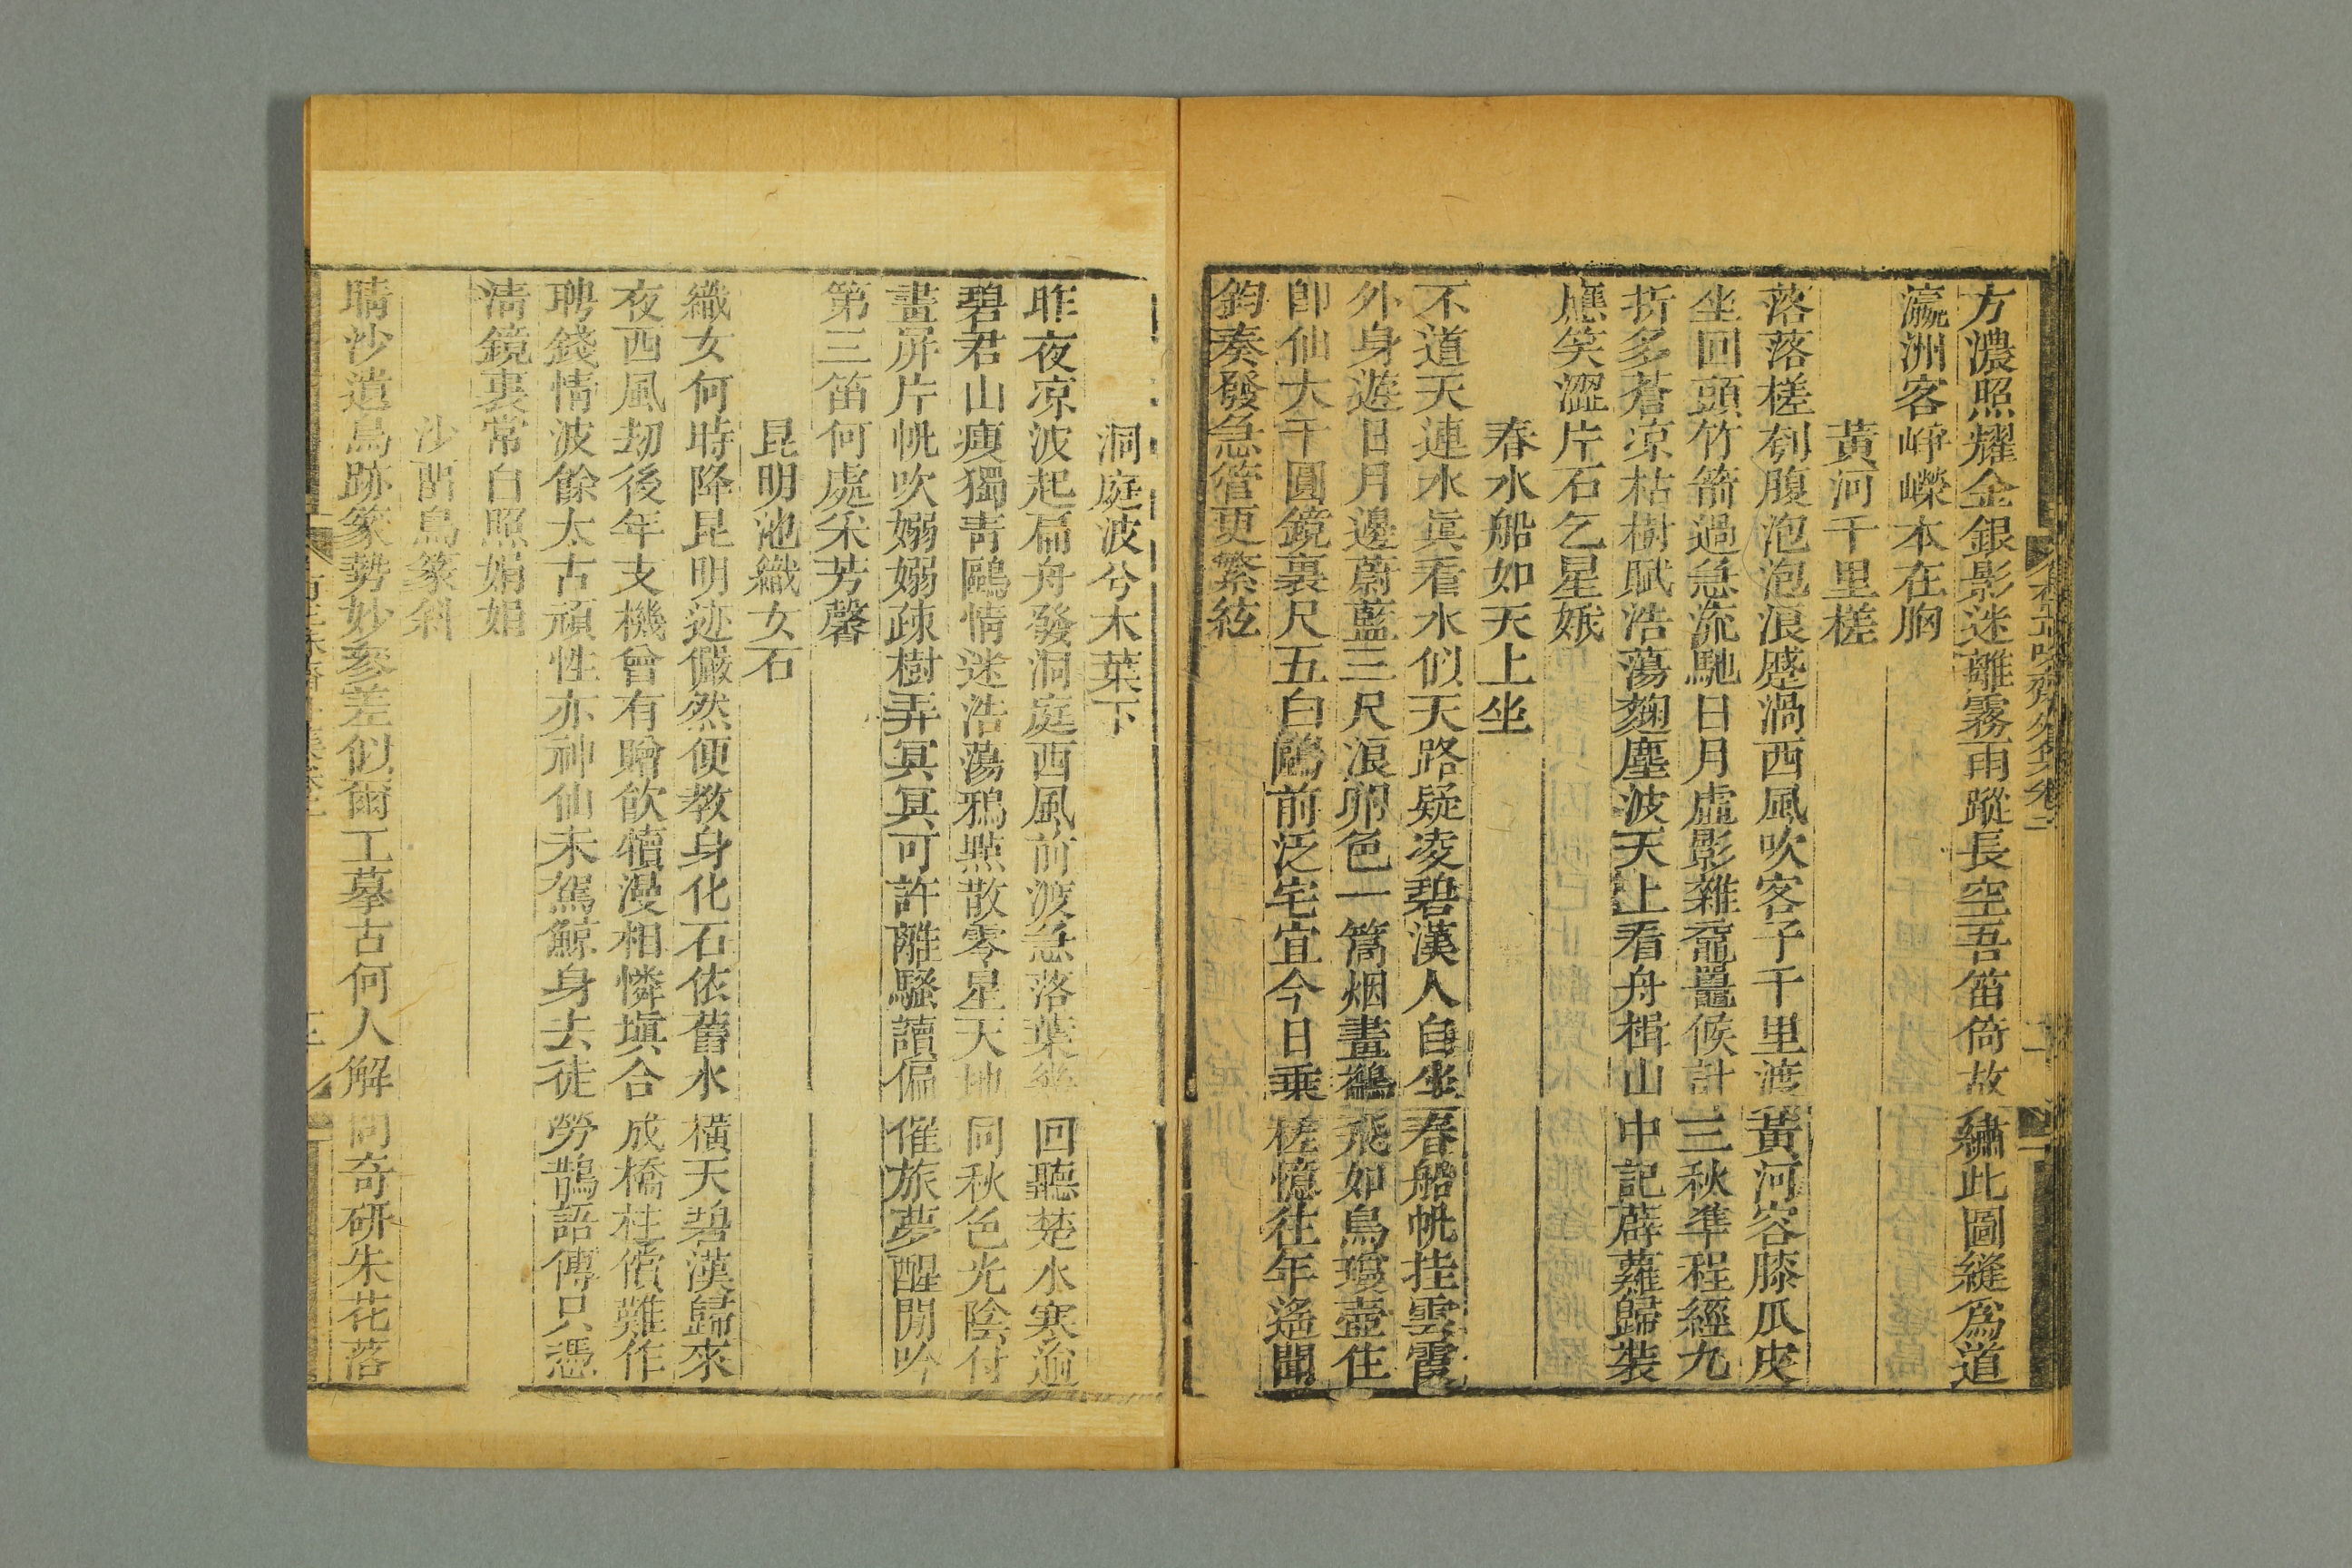 方濃照耀金銀影迷離霧雨蹤長空吾笛倚故繡此圖縫爲道
瀛洲客崢嶸本在胸
黃河千里槎
落落槎刳腹泡泡浪蹙渦西風吹客子千里渡黃河容膝瓜皮
坐回頭竹箭過急流馳日月虛影雜黿鼉候計三秋準程經九
折多蒼凉枯樹賦浩蕩麴塵波天上看舟楫山中記薜蘿歸裝
應笑澀片石乞星娥
春水船如天上坐
不道天連水眞看水似天路疑凌碧漢人自坐春船帆挂雲霞
外身遊日月邊蔚藍三尺浪卵色一篙烟畫鷁飛如鳥瓊壺住
卽仙大千圓鏡裏尺五白鷗前泛宅宜今日乘槎憶往年遙聞
鈞奏發急管更繁絃
洞庭波兮木葉下
昨夜凉波起扁舟發洞庭西風前渡急落葉回聽楚水寒逾
碧君山瘦獨靑鷗情迷浩蕩鴉點散零星天地同秋色光陰付
畫屏片帆吹嫋嫋疎樹弄冥冥可許離騷讀偏催旅夢醒閒吟
第三笛何處采芳馨
昆明池織女石
織女何時降昆明迹儼然便教身化石依舊水橫天碧漢歸來
夜西風劫後年支機曾有贈飮犢漫相憐塡合成橋柱償難作
聘錢情波餘太古頑性亦神仙未駕鯨身去徒勞鵲語傳只憑
淸鏡裏常自照娟娟
沙晴鳥篆斜
晴沙遺鳥跡篆勢妙參差似爾工摹古何人解問奇硏朱花落